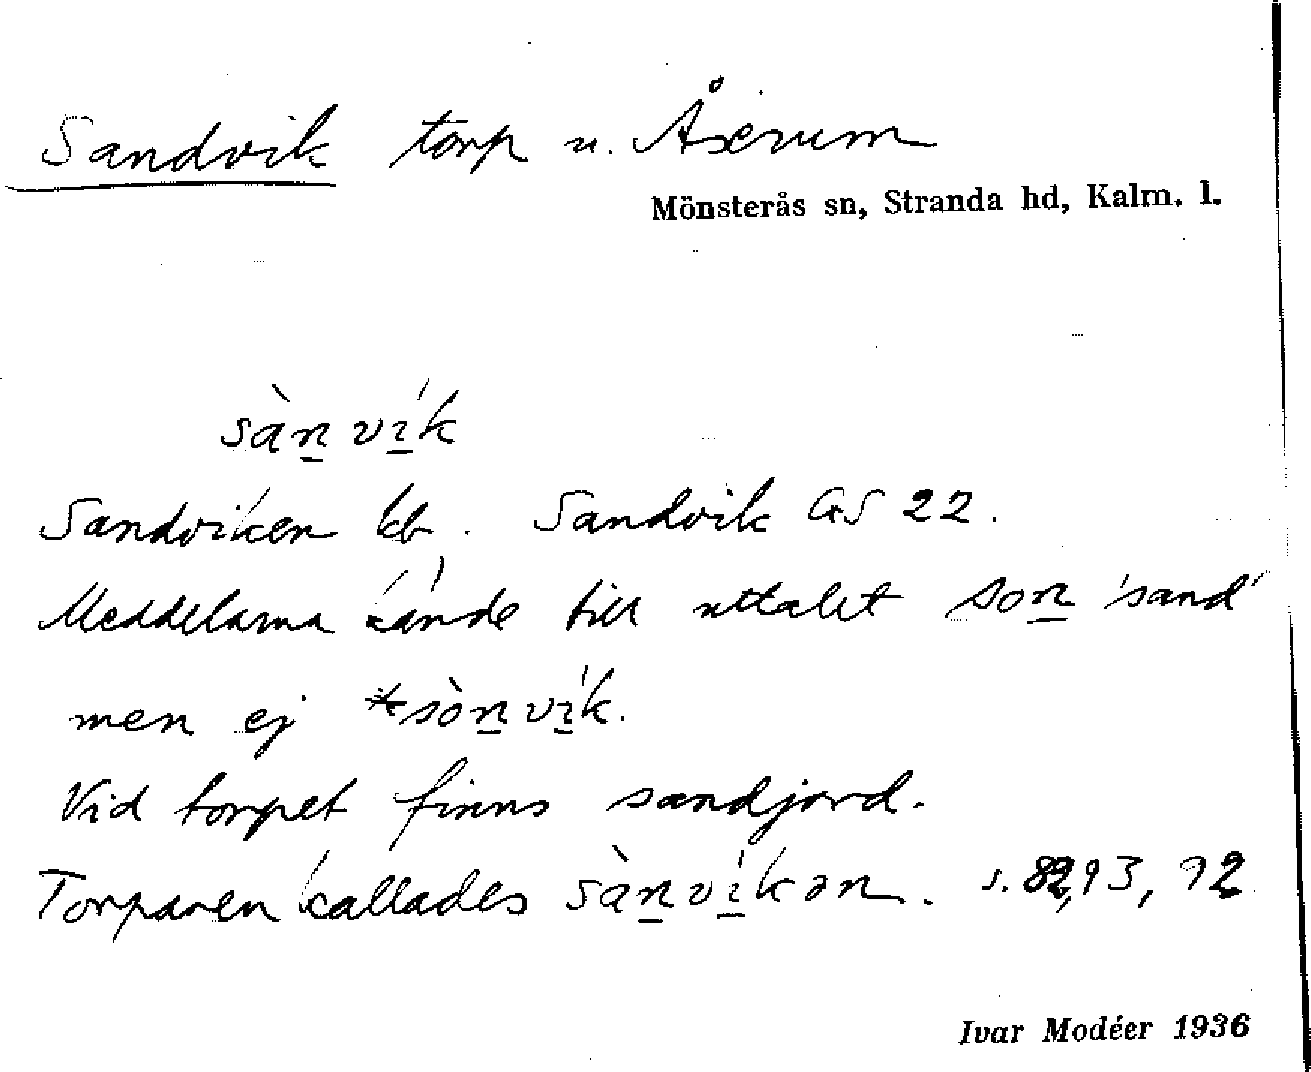 Sandvik torp u. Åserum
Mönsterås sn, Stranda hd, Kalm. l.
sàn̲ví̲k
Sandviken kb. Sandvik GS 22.
Meddelarna kände till uttalet son̲ 'sand'
men ej *sòn̲ví̲k.
Vid torpet finns sandjord.
Torparen kallades sàn̲ví̲kən. s. 82, 93, 92
Ivar Modéer 1936